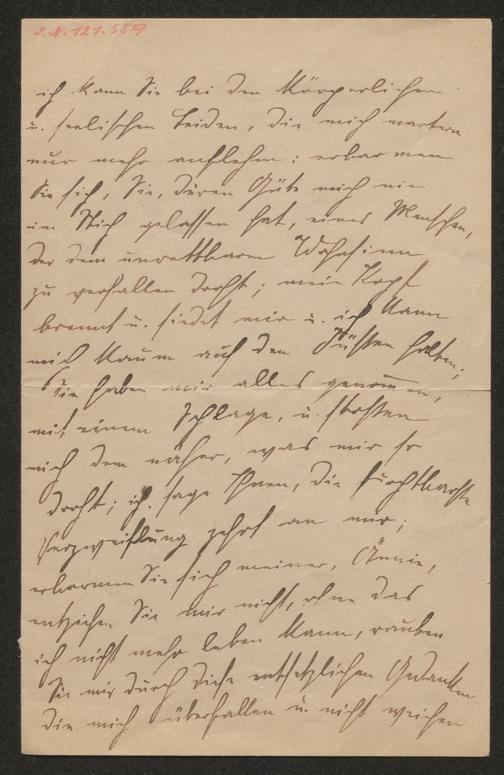 I.N. 121.559
ich kann Sie bei den körperlichen
u. seelischen Leiden, die mich martern
nur mehr anflehen: erbarmen
Sie sich, Sie, deren Güte mich nie
im Stich gelassen hat, eines Menschen,
der dem unrettbaren Wahnsinn
zu verfallen droht; mein Kopf
brennt u. siedet mir u. ich kann
mich kaum auf den Füßen halten;
Sie haben mir alles genommen,
mit einem Schlage, u. stoßen
mich dem näher, was mir so
droht; ich sage Ihnen, die furchtbarste
Verzweiflung zehrt an mir;
erbarmen Sie sich meiner, Annie,
entziehen Sie mir nicht, ohne das
ich nicht mehr leben kann, rauben
Sie mir durch diese entsetzlichen Gedanken
die mich überfallen u. nicht weichen